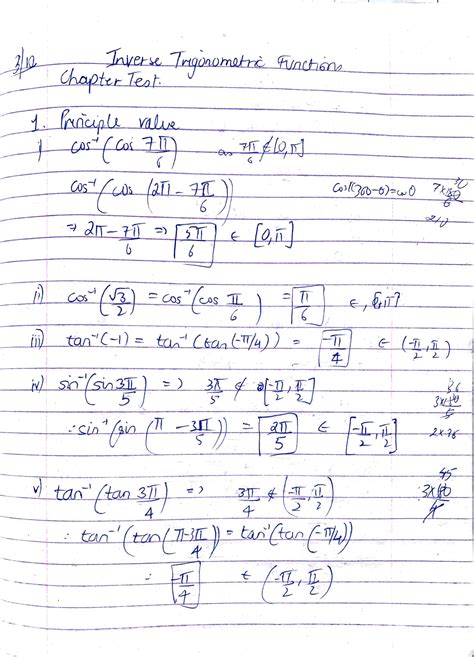 3/12 Inverse Trigonometric Functions
Chapter Test.
1. Principle value
i) cos⁻¹(cos 7π/6) as 7π/6 ∉ [0,π]
cos⁻¹(cos (2π − 7π/6)) cos(360-θ)=cosθ
⇒ 2π − 7π/6 ⇒ 5π/6 ∈ [0,π]
210
ii) cos⁻¹(√3/2) = cos⁻¹(cos π/6) = π/6 ∈, [0,π]
iii) tan⁻¹(-1) = tan⁻¹(tan(-π/4)) = -π/4 ∈ (-π/2, π/2)
iv) sin⁻¹(sin 3π/5) => 3π/5 ∉ [-π/2, π/2]
∴ sin⁻¹(sin (π − 3π/5)) = 2π/5 ∈ [-π/2, π/2]
36
2×36
v) tan⁻¹(tan 3π/4) => 3π/4 ∉ (-π/2, π/2)
45
∴ tan⁻¹(tan(π-3π/4)) = tan⁻¹(tan(-π/4))
∴ -π/4 ∈ (-π/2, π/2)